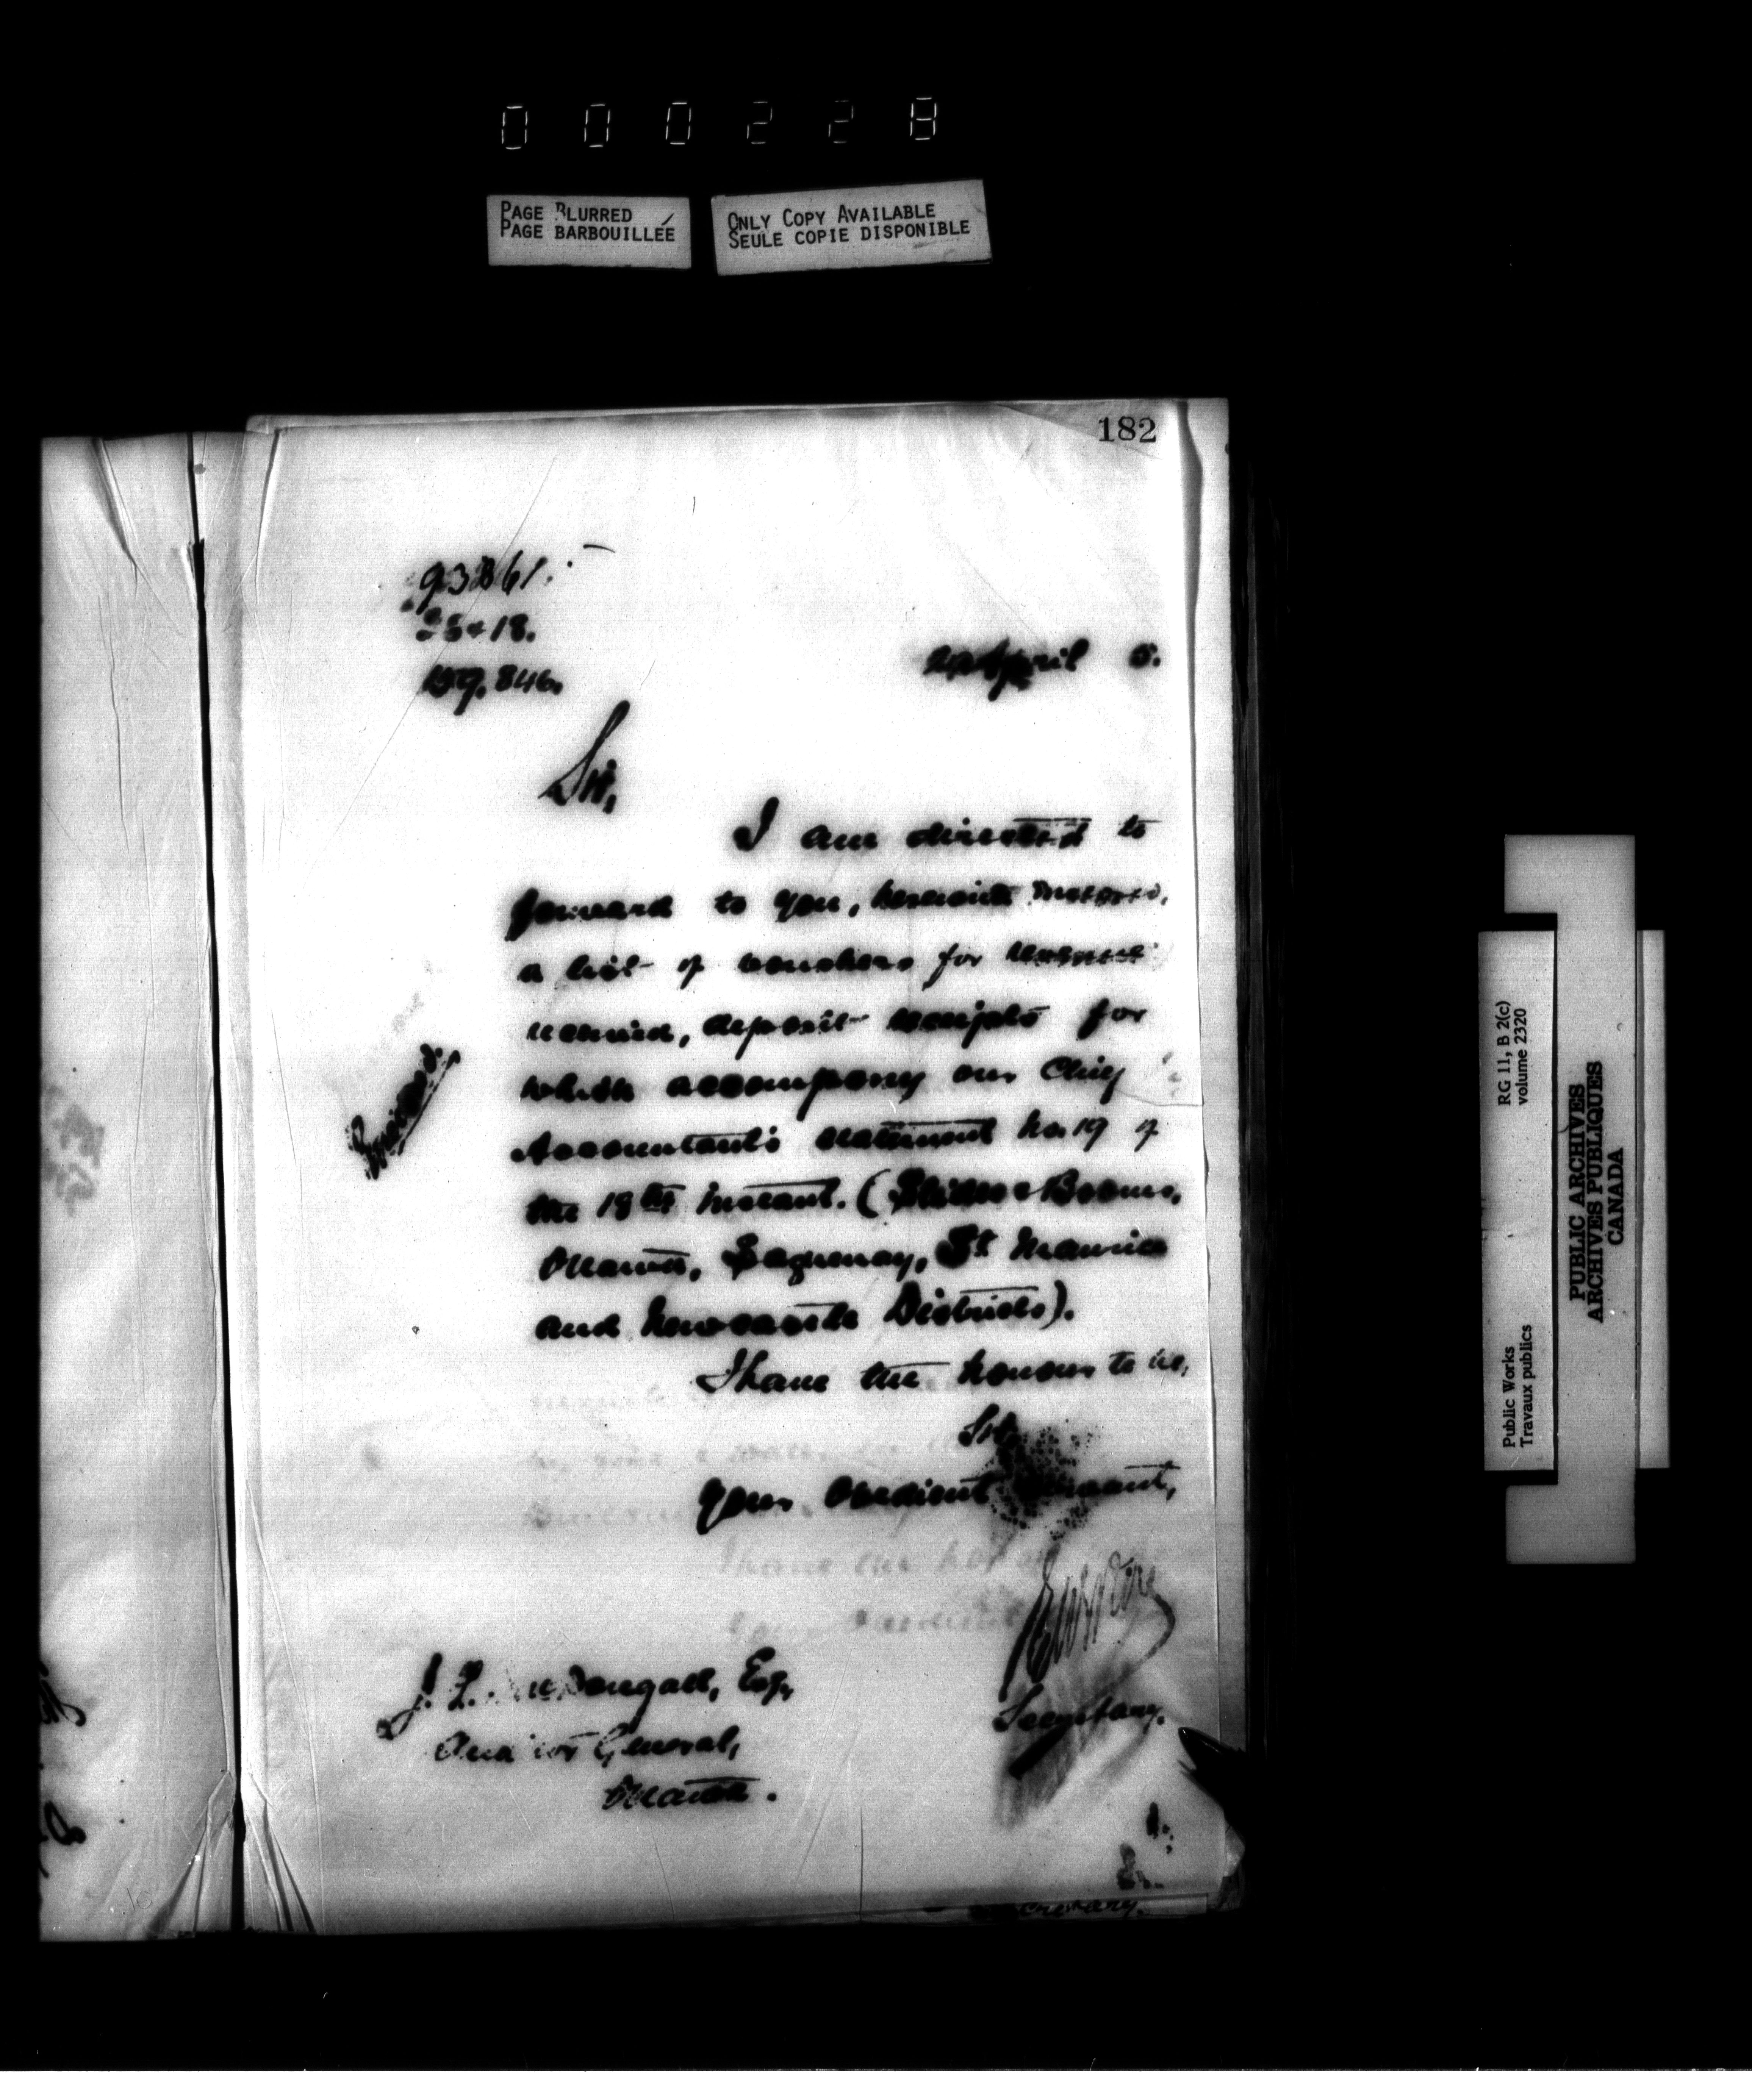 000228
PAGE BLURRED
PAGE BARBOUILLÉE
ONLY COPY AVAILABLE
SEULE COPIE DISPONIBLE
182
April 5.
Sir,
I am directed to
forward to you, herewith
a list of vouchers for
received, deposit receipts for
which accompany our Chief
Accountant's statement No. 19 of
the 18th instant. (Slides & Booms,
Ottawa, Saguenay, St Maurice
and Newcastle Districts).
I have the honour to be,
Sir,
Your obedient servant,
Secretary.
J. L. McDougall, Esq,
Auditor General,
Ottawa.
Public Works
Travaux publics
RG 11, B 2(c)
volume 2320
PUBLIC ARCHIVES
ARCHIVES PUBLIQUES
CANADA